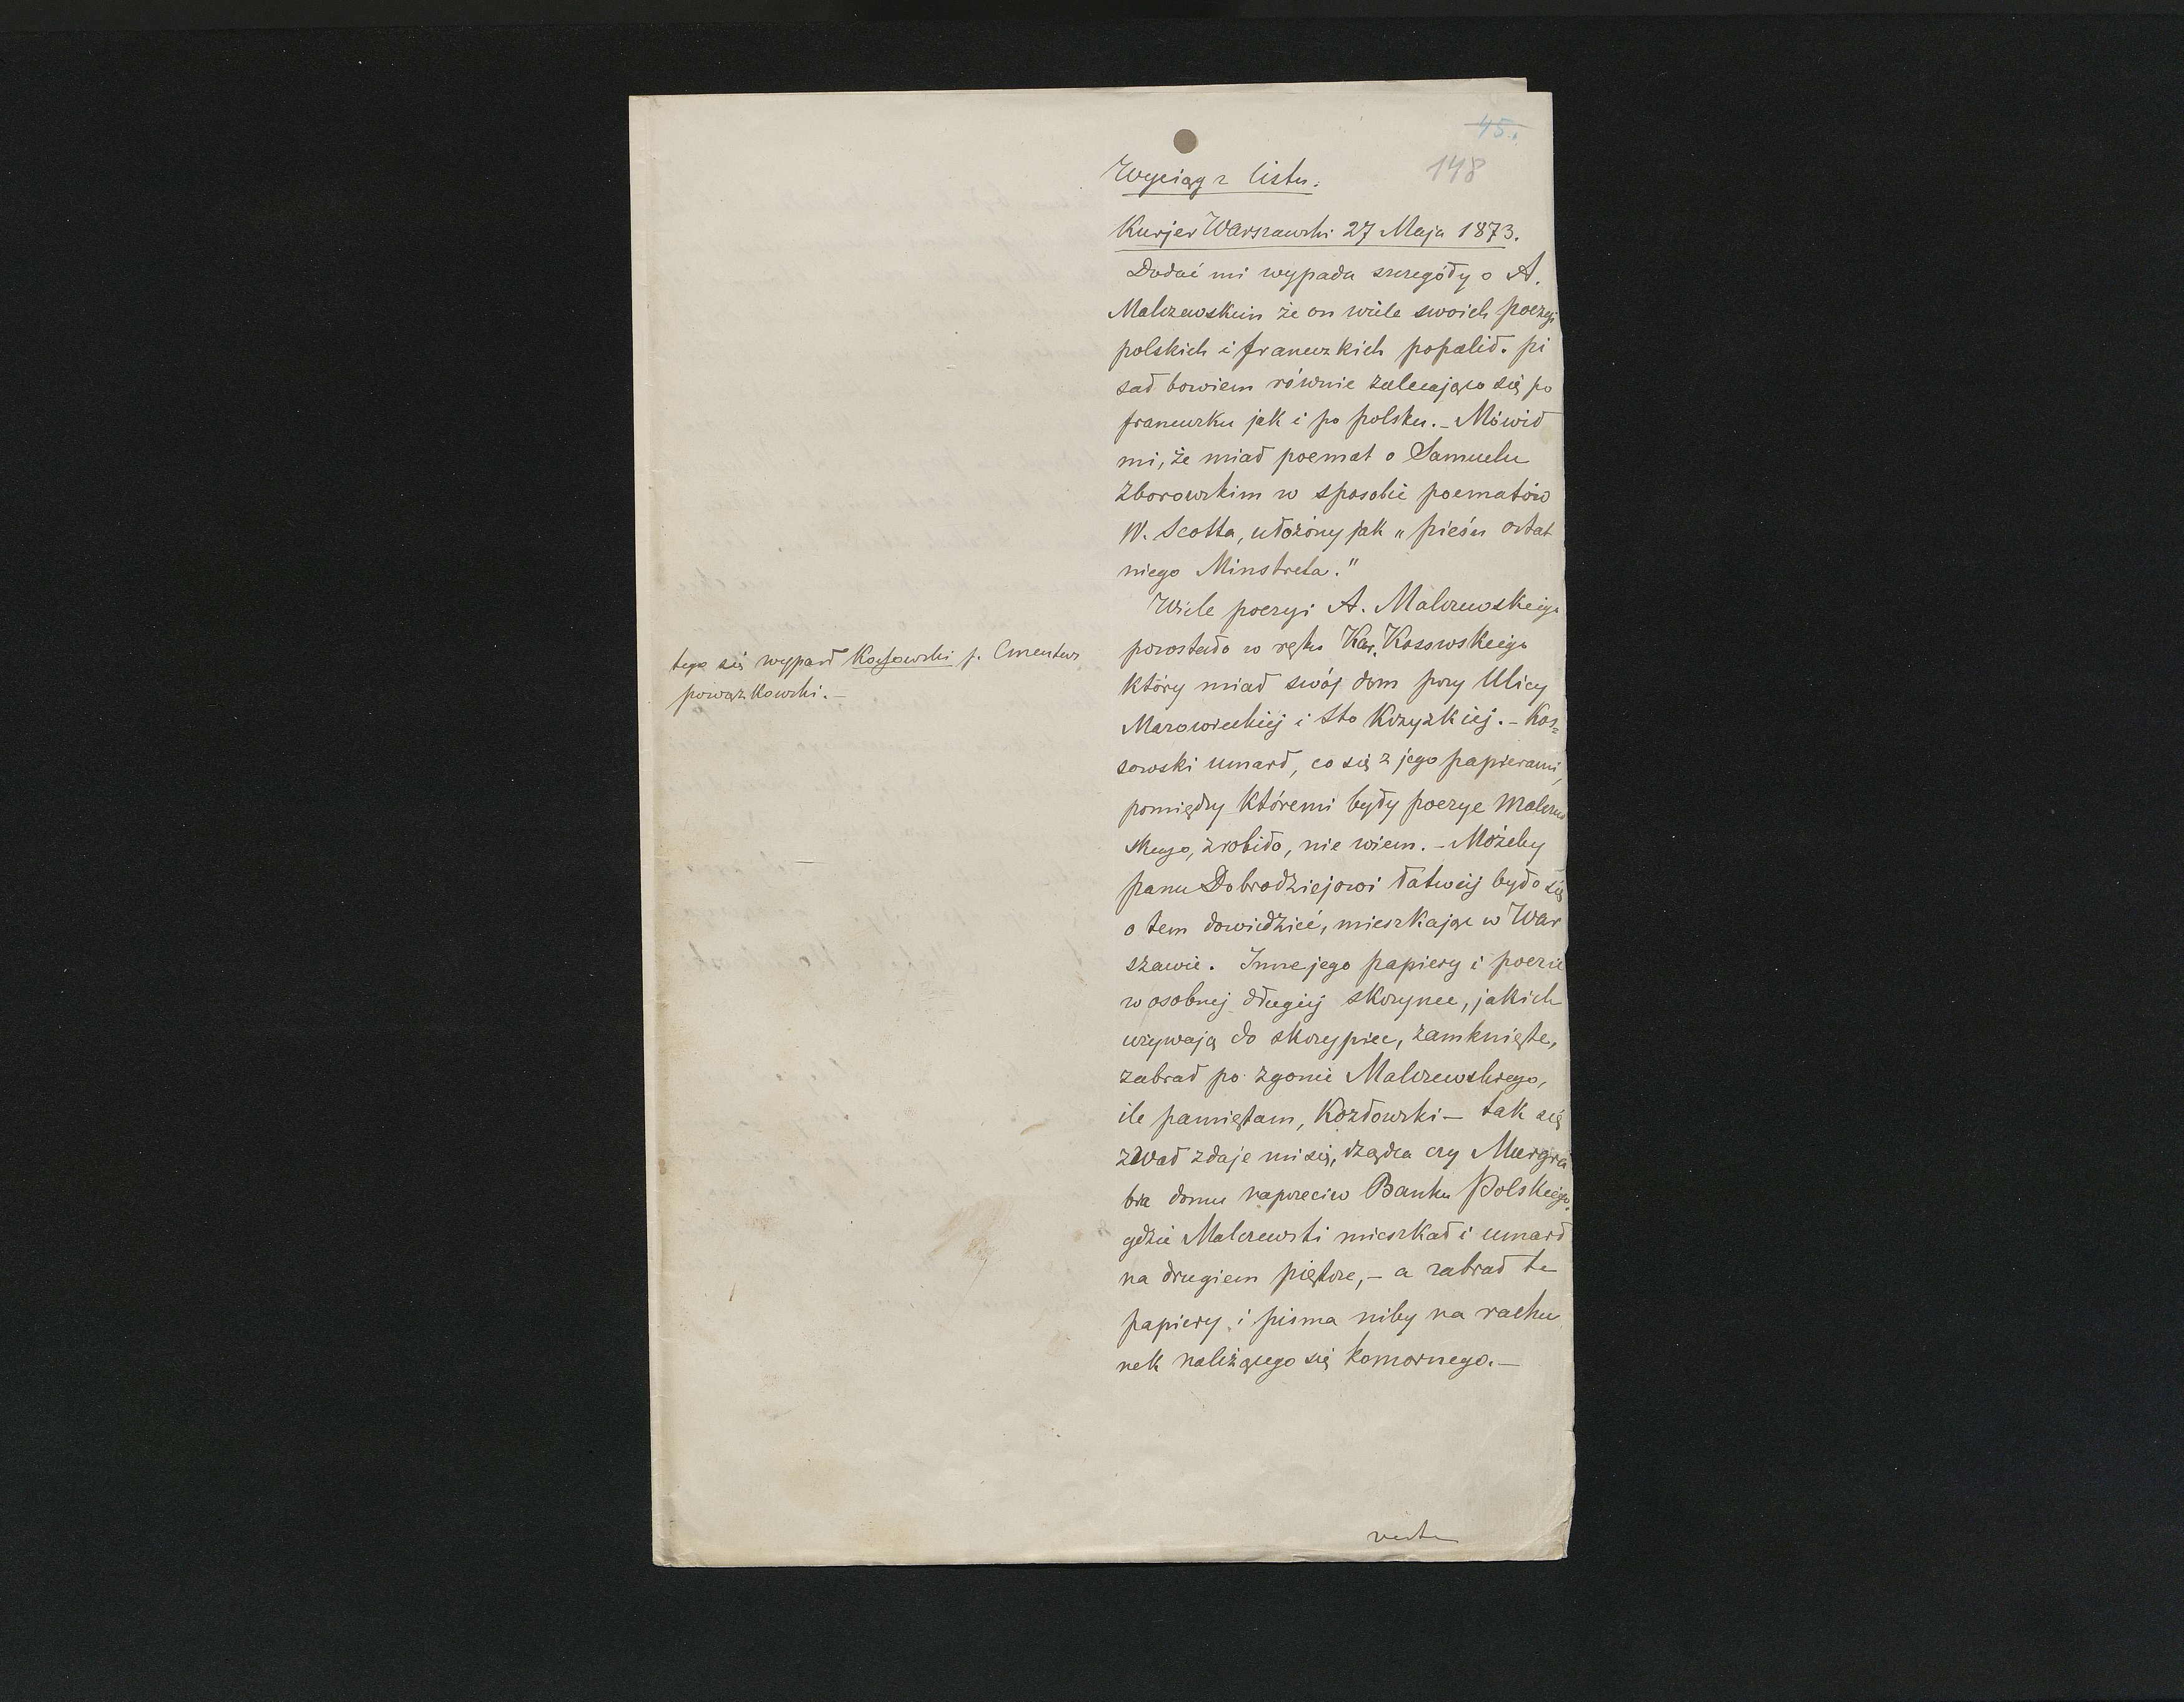 45.
148
Wyciąg z listu.
Kurjer Warszawski 27 Maja 1873.
Dodać mi wypada szczegóły o A.
Malczewskim że on wiele swoich poezyj
polskich i francuzkich popalił. pi
sał bowiem równie zalecająco się po
francuzku jak i po polsku. – Mówił
mi, że miał poemat o Samuelu
Zborowskim w sposobie poematów
W. Scotta, ułożony jak „pieśń ostat
niego Minstrela."
Wiele poezyi A. Malczewskiego
pozostało w ręku Kossowskiego
który miał swój dom przy Ulicy
Mazowieckiej i Sto Krzyzkiej. – Kos=
sowski umarł, co się z jego papierami,
pomiędzy któremi były poezye Malczew
skiego, zrobiło, nie wiem. – Możeby
panu Dobrodziejowi łatwiej było się
o tem dowiedzieć, mieszkając w War
szawie. Inne jego papiery i poezie
w osobnej długiej skrzynce, jakich
używają do skrzypiec, zamknięte,
zabrał po zgonie Malczewskiego,
ile pamiętam, Kozłowski – tak się
zwał zdaje mi się, rządca czy Murgra
bia domu naprzeciw Banku Polskiego,
gdzie Malczewski mieszkał i umarł
na drugiem piętrze, – a zabrał te
papiery i pisma niby na rachu
nek należącego się komornego. –
tego się wyparł Kossowski p. Cmentarz
powązkowski. –